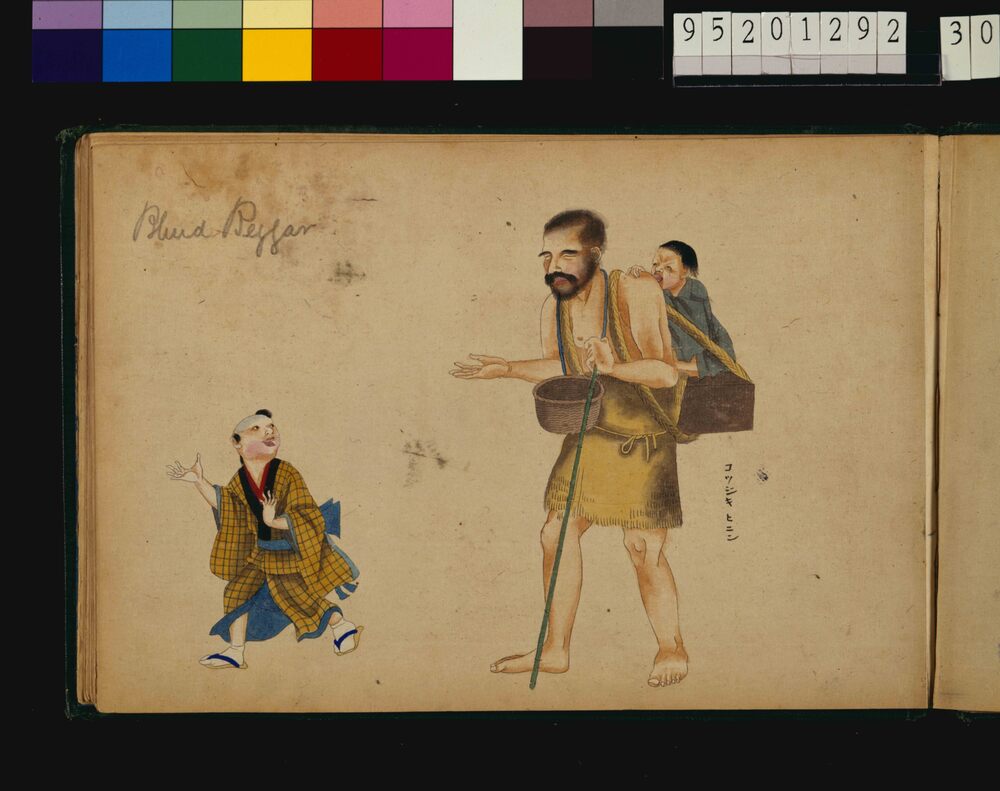 95201292 30
Blind Beggar
コツジキヒニン